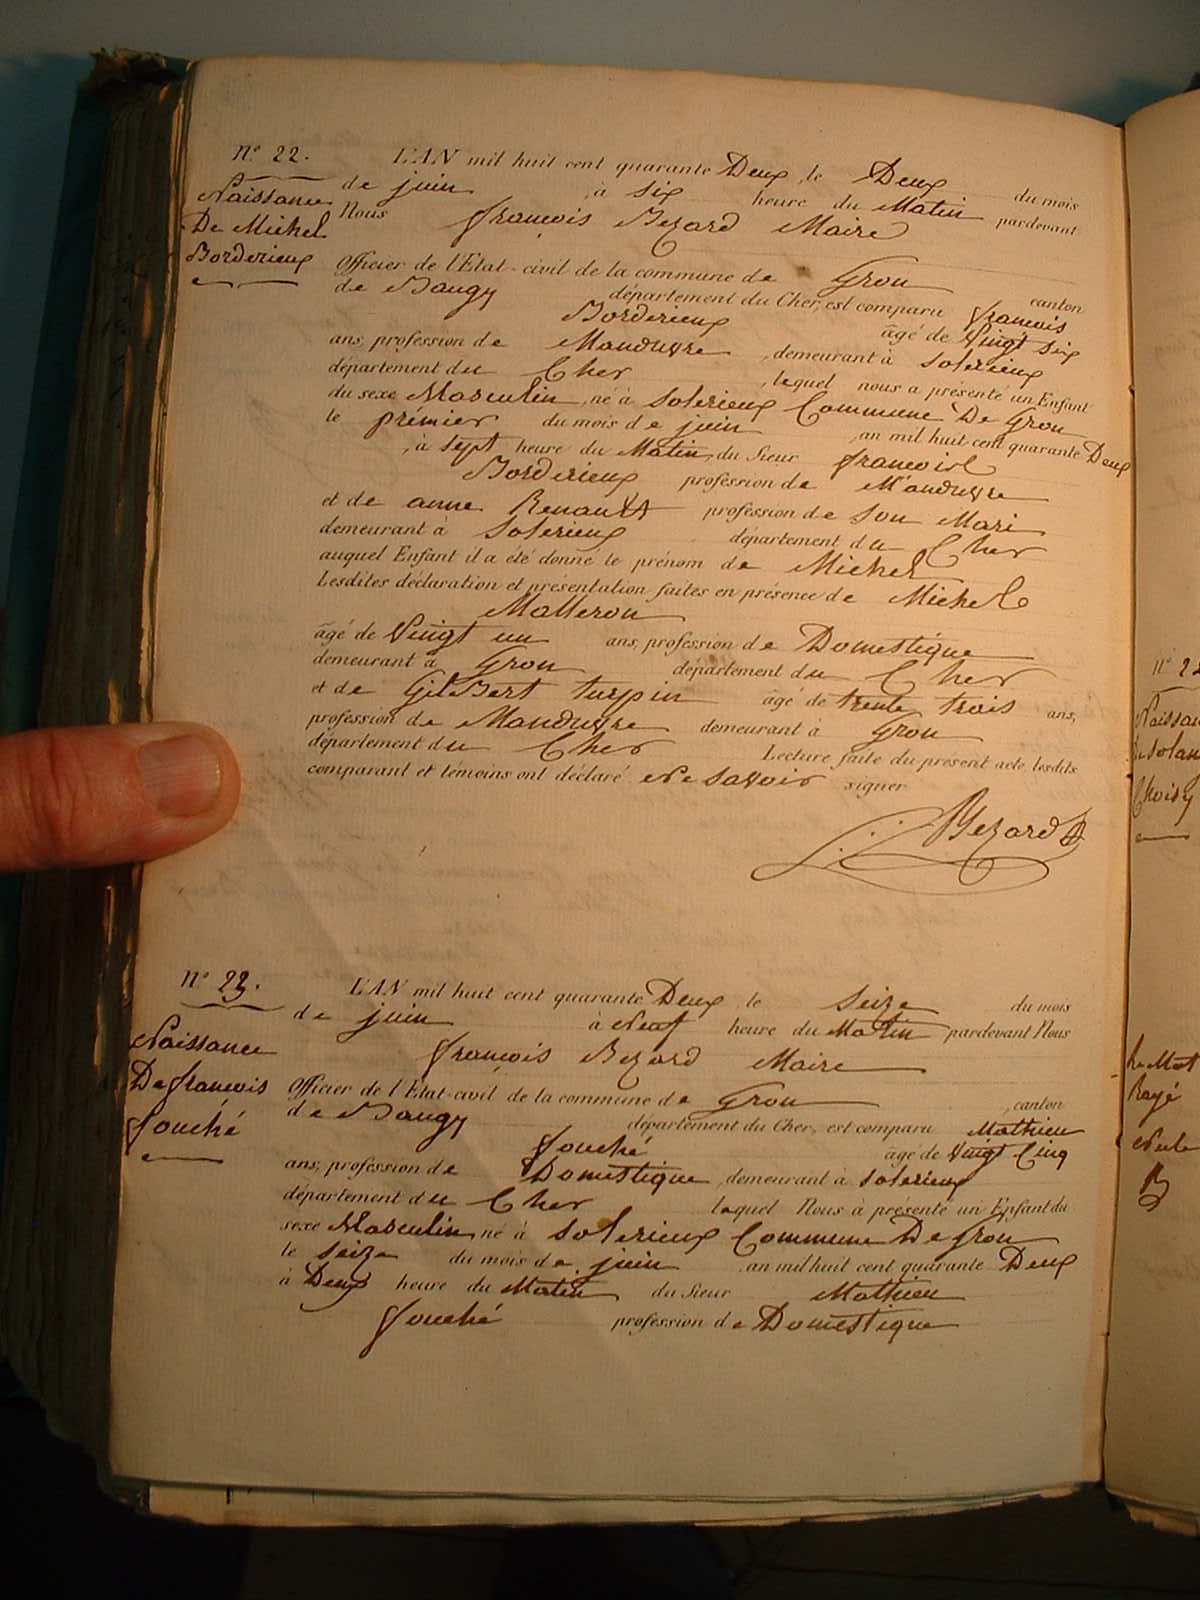 N° 22.
Naissance
De Michel
Borderieux
L'AN mil huit cent quarante Deux, le Deux du mois
de juin, à six heure du Matin pardevant
Nous françois Bezard Maire
Officier de l'Etat-civil de la commune de Gron canton
de Baugy département du Cher, est comparu françois
Borderieux âgé de Vingt six
ans, profession de Manduvre, demeurant à Solerieux
département du Cher, lequel nous a présenté un Enfant
du sexe Masculin, né à Solerieux Commune De Gron
le prémier du mois de juin, an mil huit cent quarante Deux
, à sept heure du Matin, du Sieur francois
Borderieux profession de Manduvre
et de anne Renault profession de Son Mari
demeurant à Solerieux département du Cher
auquel Enfant il a été donné le prénom de Michel
Lesdites déclaration et présentation faites en présence de Michel
Malleron
âgé de Vingt un ans, profession de Domestique
demeurant à Gron département du Cher
et de Gilbert turpin âgé de trente trois ans,
profession de Manduvre demeurant à Gron
département du Cher Lecture faite du présent acte, lesdits
comparant et témoins ont déclaré Ne savoir signer
Bezard
N° 23.
Naissance
De françois
fouché
L'AN mil huit cent quarante Deux, le Seize du mois
de juin à Neuf heure du Matin pardevant Nous
françois Bezard Maire
Officier de l'Etat-civil de la commune de Gron, canton
de Baugy département du Cher, est comparu Mathieu
fouché âgé de Vingt Cinq
ans, profession de Domestique, demeurant à Solerieux
département du Cher lequel Nous à présenté un Enfant du
sexe Masculin né à Solerieux Commune De Gron
le Seize du mois de juin an mil huit cent quarante Deux
à Deux heure du Matin du Sieur Mathieu
fouché profession de Domestique
Le Mot
Rayé
Nule
B